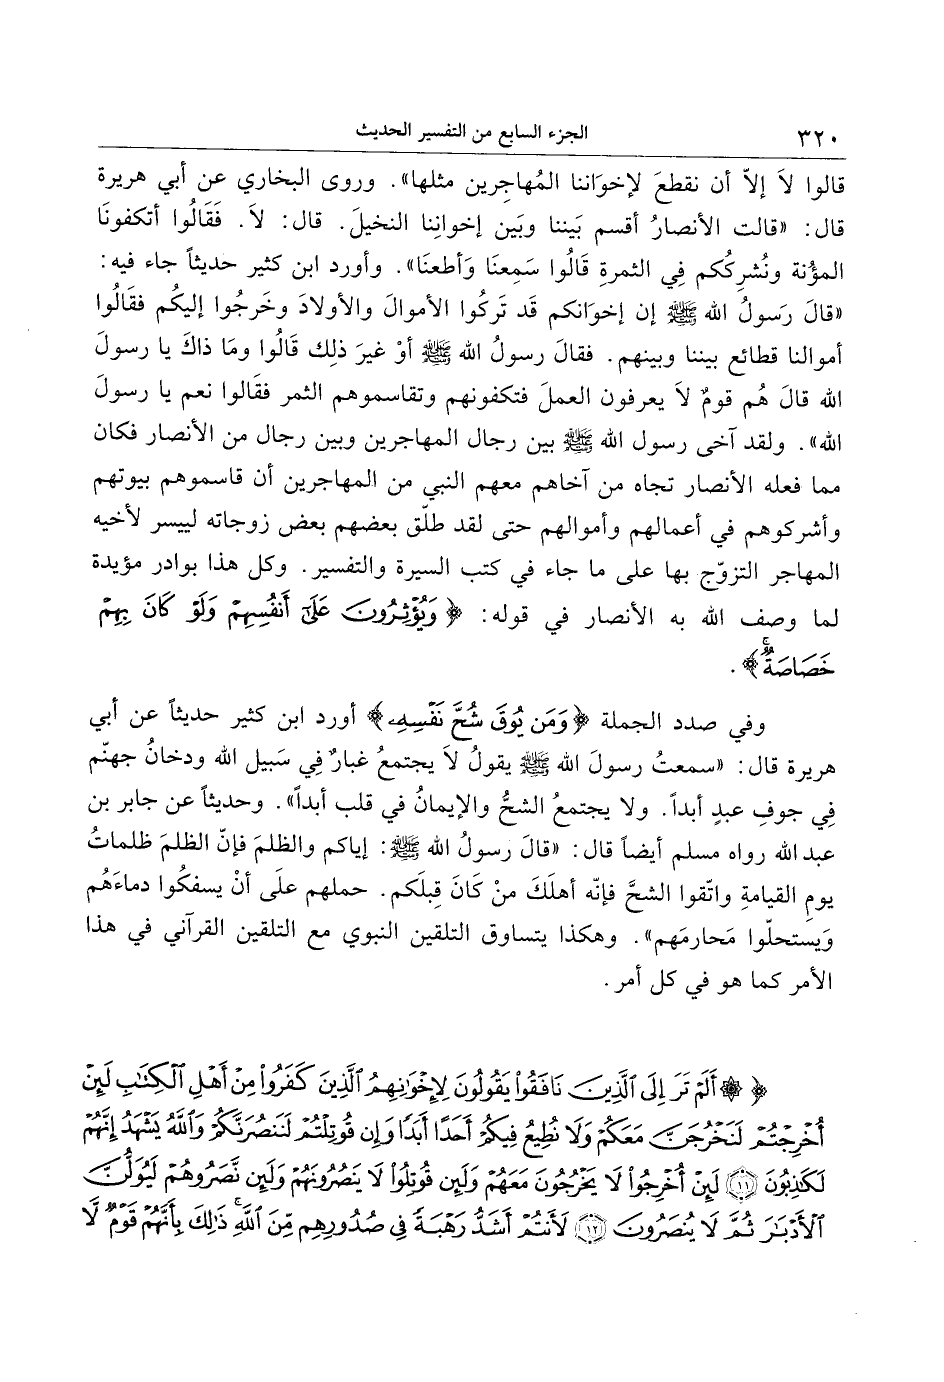 ٣٢٠ الجزء السابع من التفسير الحديث
قالوا لاَ إلاّ أن نقطعَ لإخوَاننا المُهاجرِين مثلها». وروى البخاري عن أبي هريرة
قال: «قالت الأنصارُ أقسم بَيننا وبَين إخوانِنا النخيلَ. قال: لاَ. فَقَالُوا أتكفونَا
المؤُنة ونُشرِكُكم فِي الثمرةِ قَالُوا سَمِعنَا وَأطعنَا». وأورد ابن كثير حديثاً جاء فيه:
«قالَ رَسولُ الله ﷺ إن إخوَانكم قَد تَركُوا الأموالَ والأولادَ وخَرجُوا إليكُم فقَالُوا
أموالنا قطائع بيننا وبينهم. فقالَ رسولُ الله ﷺ أوْ غيرَ ذلِك قَالُوا ومَا ذاكَ يا رسولَ
الله قالَ هُم قومٌ لاَ يعرفون العملَ فتكفونهم وتقاسموهم الثمر فقَالوا نعم يا رسولَ
الله». ولقد آخى رسول الله ﷺ بين رجال المهاجرين وبين رجال من الأنصار فكان
مما فعله الأنصار تجاه من آخاهم معهم النبي من المهاجرين أن قاسموهم بيوتهم
وأشركوهم في أعمالهم وأموالهم حتى لقد طلّق بعضهم بعض زوجاته لييسر لأخيه
المهاجر التزوّج بها على ما جاء في كتب السيرة والتفسير. وكل هذا بوادر مؤيدة
لما وصف الله به الأنصار في قوله: ﴿وَيُؤْثِرُونَ عَلَىٰٓ أَنفُسِهِمْ وَلَوْ كَانَ بِهِمْ
خَصَاصَةٌۚ﴾.
وفي صدد الجملة ﴿وَمَن يُوقَ شُحَّ نَفْسِهِۦ﴾ أورد ابن كثير حديثاً عن أبي
هريرة قال: «سمعتُ رسولَ الله ﷺ يقولُ لاَ يجتمعُ غبارٌ فِي سَبيل الله ودخانُ جهنّم
فِي جوفِ عبدٍ أبداً. ولا يجتمعُ الشحُّ والإيمانُ في قلب أبداً». وحديثاً عن جابر بن
عبد الله رواه مسلم أيضاً قال: «قالَ رسولُ الله ﷺ: إياكم والظلمَ فإنّ الظلمَ ظلماتُ
يومِ القيامةِ واتّقوا الشحَّ فإنّه أهلَكَ منْ كَانَ قبلَكم. حملهم علَى أنْ يسفكُوا دماءَهُم
وَيستحلّوا مَحارمَهم». وهكذا يتساوق التلقين النبوي مع التلقين القرآني في هذا
الأمر كما هو في كل أمر.
﴿۞ أَلَمْ تَرَ إِلَى ٱلَّذِينَ نَافَقُوا۟ يَقُولُونَ لِإِخْوَٰنِهِمُ ٱلَّذِينَ كَفَرُوا۟ مِنْ أَهْلِ ٱلْكِتَٰبِ لَئِنْ
أُخْرِجْتُمْ لَنَخْرُجَنَّ مَعَكُمْ وَلَا نُطِيعُ فِيكُمْ أَحَدًا أَبَدًا وَإِن قُوتِلْتُمْ لَنَنصُرَنَّكُمْ وَٱللَّهُ يَشْهَدُ إِنَّهُمْ
لَكَٰذِبُونَ ١١ لَئِنْ أُخْرِجُوا۟ لَا يَخْرُجُونَ مَعَهُمْ وَلَئِن قُوتِلُوا۟ لَا يَنصُرُونَهُمْ وَلَئِن نَّصَرُوهُمْ لَيُوَلُّنَّ
ٱلْأَدْبَٰرَ ثُمَّ لَا يُنصَرُونَ ١٢ لَأَنتُمْ أَشَدُّ رَهْبَةً فِى صُدُورِهِم مِّنَ ٱللَّهِۚ ذَٰلِكَ بِأَنَّهُمْ قَوْمٌ لَّا